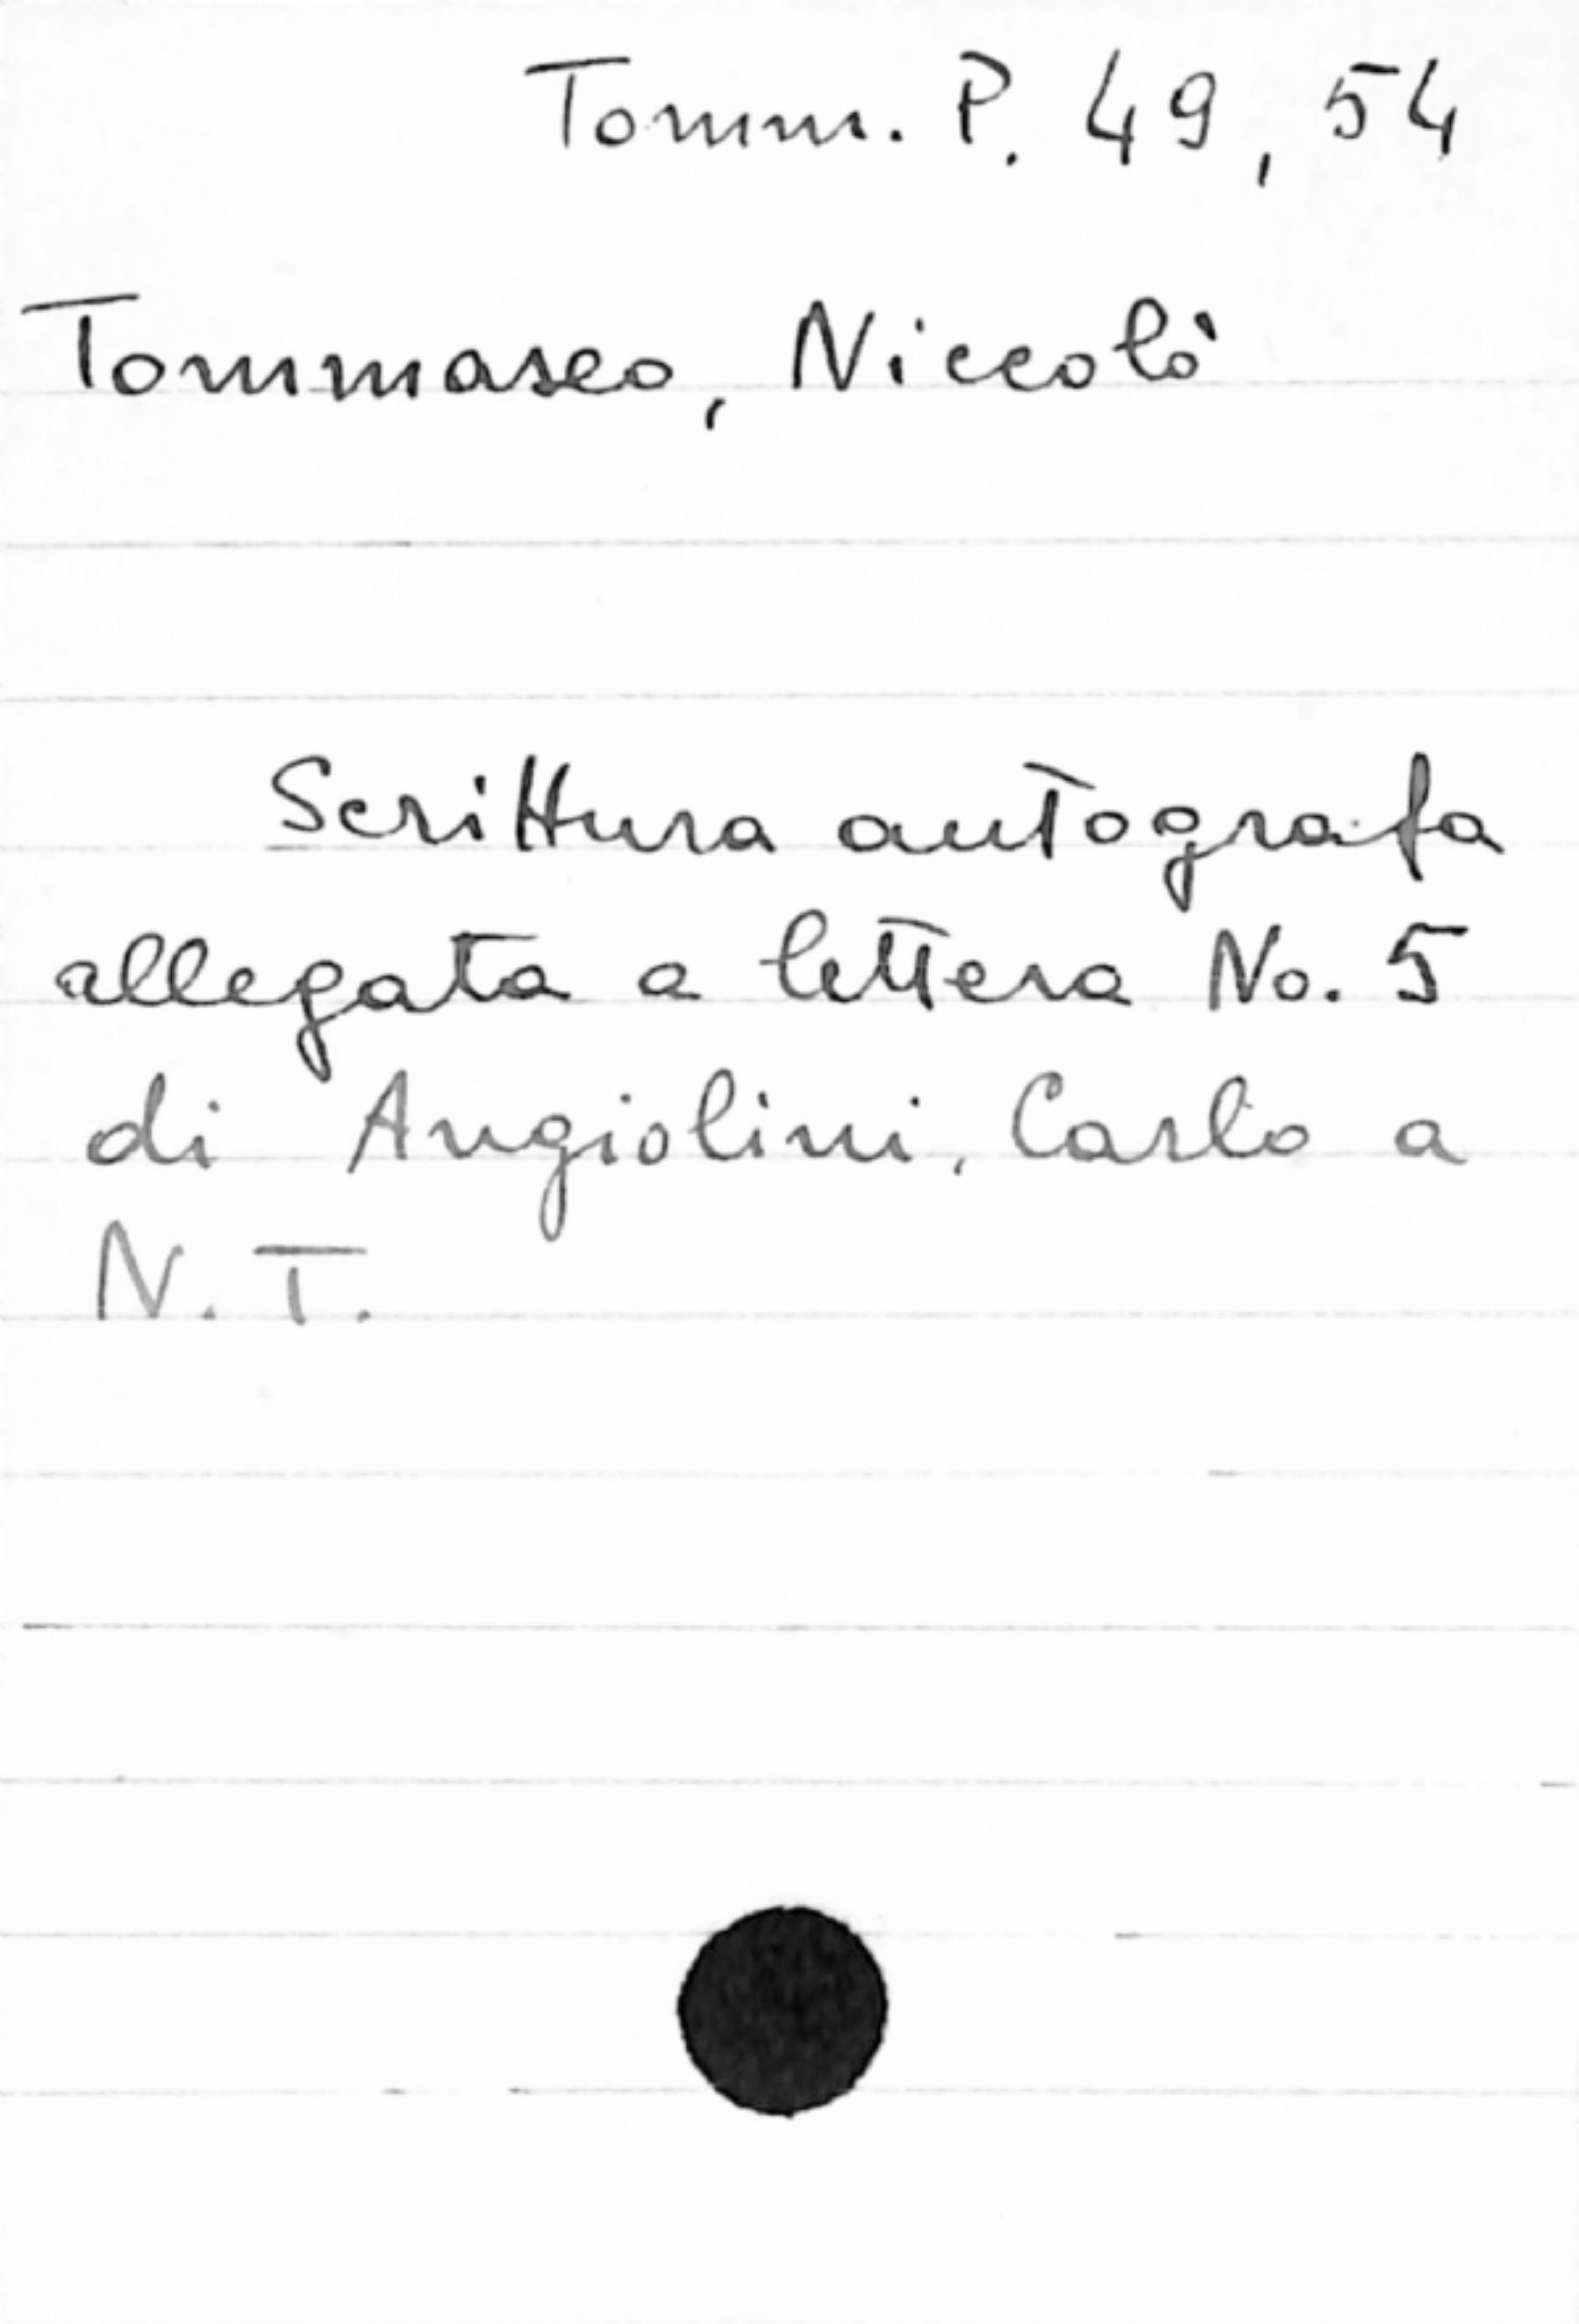 Tomm. P. 49, 54
Tommaseo, Niccolò
Scrittura autografa
allegata a lettera No. 5
di Angiolini, Carlo a
N. T.